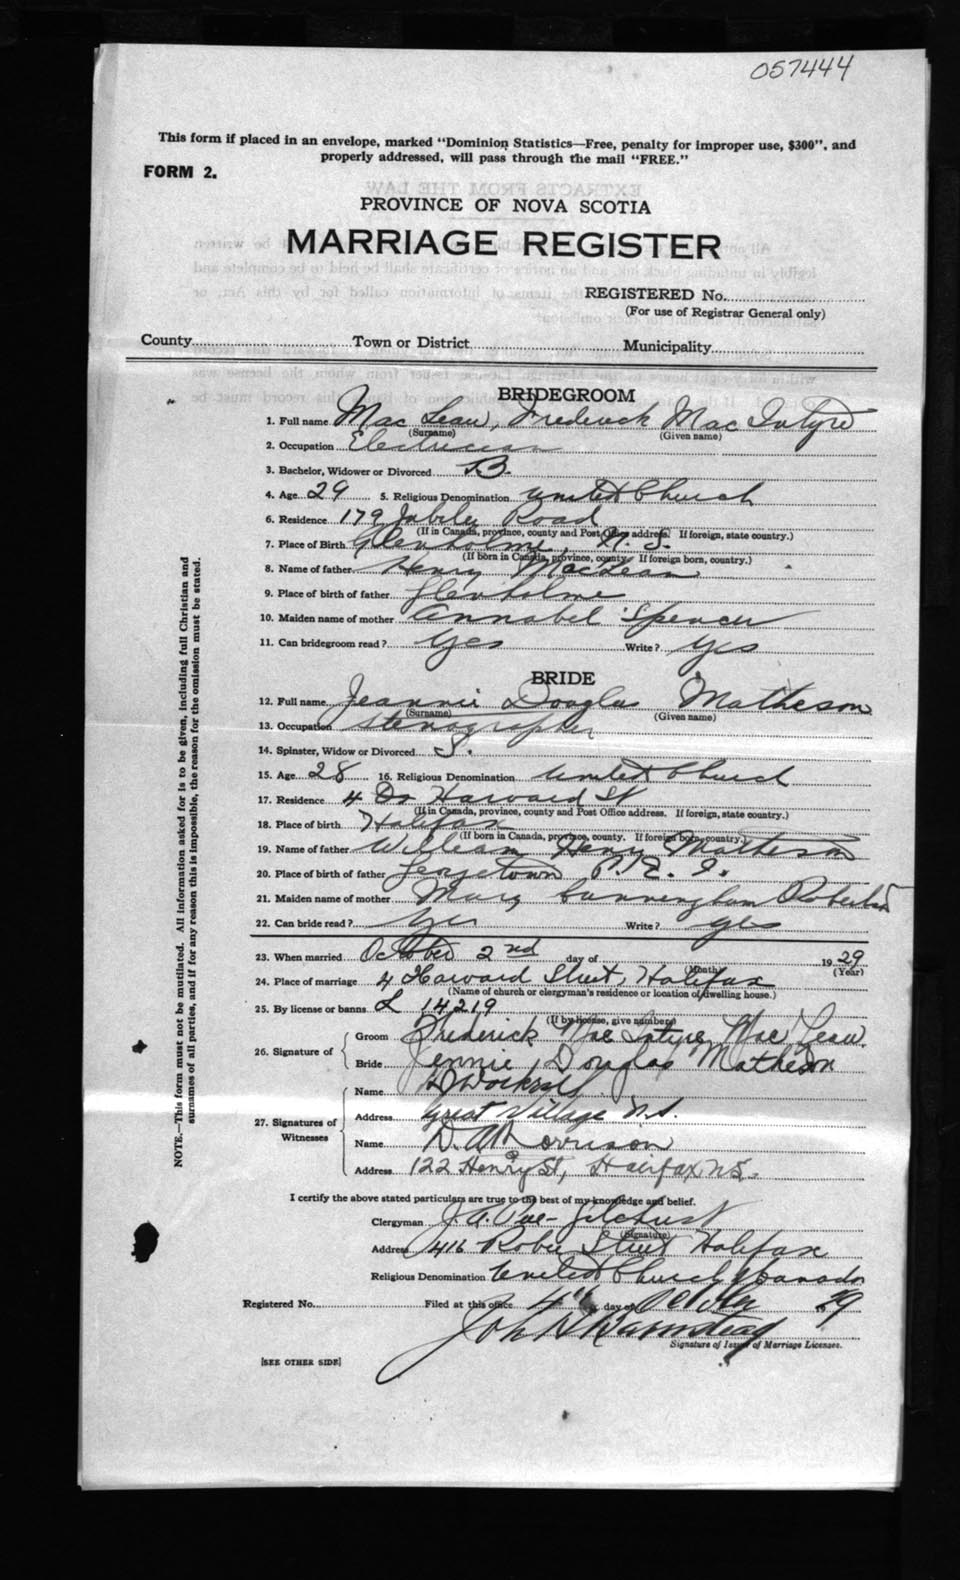 057444
This form if placed in an envelope, marked "Dominion Statistics—Free, penalty for improper use, $300", and
properly addressed, will pass through the mail "FREE."
FORM 2.
PROVINCE OF NOVA SCOTIA
MARRIAGE REGISTER
REGISTERED No.
(For use of Registrar General only)
County Town or District Municipality
BRIDEGROOM
1. Full name Mac Lean, Frederick Mac Intyre
(Surname) (Given name)
2. Occupation Electrician
3. Bachelor, Widower or Divorced B.
4. Age 29 5. Religious Denomination United Church
6. Residence 179 Jubilee Road
(If in Canada, province, county and Post Office address. If foreign, state country.)
7. Place of Birth Glenholme, N. S.
(If born in Canada, province, county. If foreign born, country.)
8. Name of father Henry MacLean
9. Place of birth of father Glenholme
10. Maiden name of mother Annabel Spencer
11. Can bridegroom read? Yes Write? Yes
BRIDE
12. Full name Jeannie Douglas Matheson
(Surname) (Given name)
13. Occupation Stenographer
14. Spinster, Widow or Divorced S.
15. Age 28 16. Religious Denomination United Church
17. Residence 4 Harvard St
(If in Canada, province, county and Post Office address. If foreign, state country.)
18. Place of birth Halifax
(If born in Canada, province, county. If foreign born, country.)
19. Name of father William Henry Matheson
20. Place of birth of father Georgetown P. E. I.
21. Maiden name of mother Mary Cunningham Robertson
22. Can bride read? Yes Write? Yes
23. When married October 2nd day of 1929
(Month) (Year)
24. Place of marriage 4 Harvard Street, Halifax
(Name of church or clergyman's residence or location of dwelling house.)
25. By license or banns L 14219
(If by license, give number)
26. Signature of Groom Frederick Mac Intyre Mac Lean.
Bride Jennie Douglas Matheson
27. Signatures of Witnesses Name
Address Great Village N.S.
Name D. A. Morrison
Address 122 Henry St, Halifax N.S.
I certify the above stated particulars are true to the best of my knowledge and belief.
Clergyman J. A. Gilchrist
(Signature)
Address 416 Robie Street Halifax
Religious Denomination United Church Canada
Registered No. Filed at this office 4th day of October 1929
John
Signature of Issuer of Marriage Licenses.
[SEE OTHER SIDE]
NOTE.—This form must not be mutilated. All information asked for is to be given, including full Christian and
surnames of all parties, and if for any reason this is impossible, the reason for the omission must be stated.